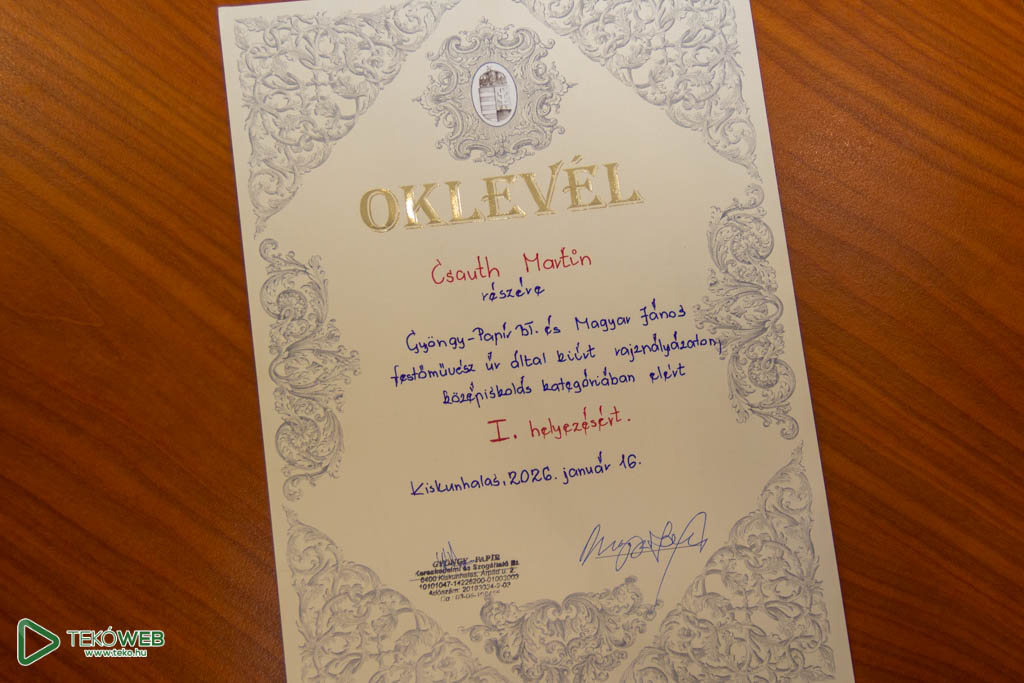 OKLEVÉL
Csauth Martin
részére
Gyöngy-Papír BT. és Magyar János
festőművész úr által kiírt rajzpályázaton,
középiskolás kategóriában elért
I. helyezésért.
Kiskunhalas, 2026. január 16.
GYÖNGY-PAPÍR
Kereskedelmi és Szogáltató Bt.
6400 Kiskunhalas, Árpád u. 2.
10101047-14226200-01003003
TEKÓWEB
www.teko.hu